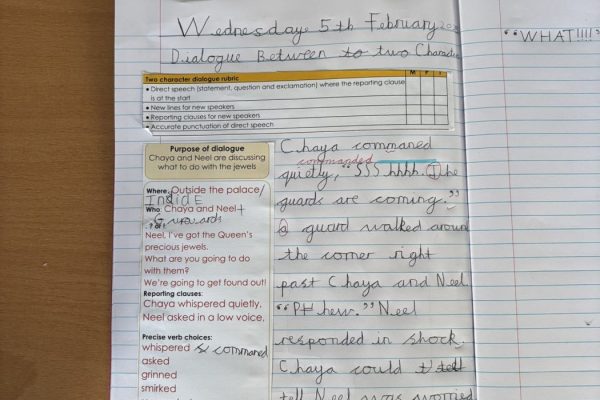 Wednesday 5th February
Dialogue Between to two
"WHAT!!!!"
M P I
Two character dialogue rubric
• Direct speech (statement, question and exclamation) where the reporting clause
is at the start
• New lines for new speakers
• Reporting clauses for new speakers
• Accurate punctuation of direct speech
Purpose of dialogue
Chaya and Neel are discussing
what to do with the jewels
Where: Outside the palace/
InsidE
Who Chaya and Neel +
Neel, I've got the Queen's
precious jewels.
What are you going to do
with them?
We're going to get found out!
Reporting clauses:
Chaya whispered quietly,
Neel asked in a low voice,
Precise verb choices:
whispered commaned
asked
grinned
smirked
Chaya commaned
commanded
quietly, "SSS hhhh. The
guards are coming."
a guard walked around
the corner right
past Chaya and Neel.
"PHhew." Neel
responded in shock.
Chaya could tell
tell Neel was worried